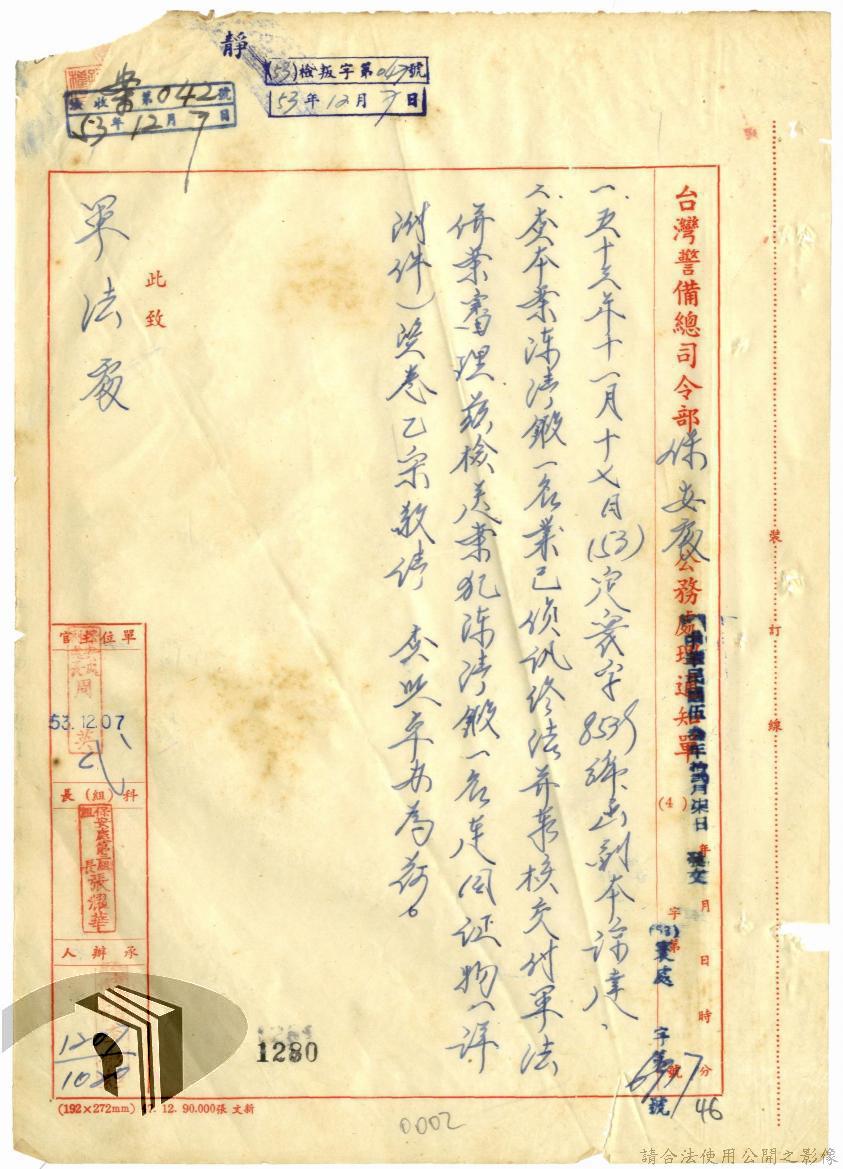 靜
(53)檢叛字第047號
53年12月7日
收案第042號
53年12月7日
台灣警備總司令部保安處公務處理通知單
(4)
中華民國伍拾叁年拾貳月柒日 發文
年月日時分
字第號
(53)寰處字第
46
裝訂線
一、五十三年十一月十七日(53)定寰字8539號函副本諒達、
二、查本案陳清鍛一名業已偵訊終結并奉核交付軍法
併案審理茲檢送案犯陳清鍛一名連同証物(詳
附件)暨卷乙宗敬請 查照卓办為荷。
此致
軍法處
單位主官
處長周
53.12.07
科(組)長
保安處第二組組長張耀華
承辦人
1207
1020
1280
(192×272mm) 47. 12. 90.000張 文新
0002
請合法使用公開之影像